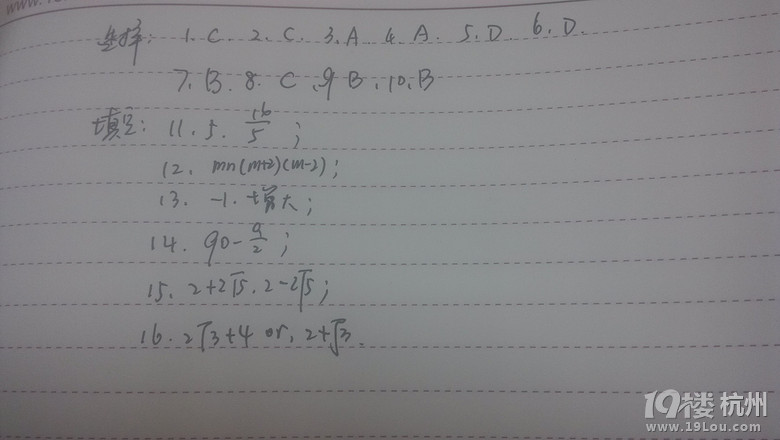 选择: 1. C 2. C 3. A 4. A. 5. D 6. D.
7. B. 8. C 、9 B、10. B
填空: 11. 5. 16/5 ;
12. mn(m+2)(m-2) ;
13. -1. 增大 ;
14. 90 - a/2 ;
15. 2+2√5. 2-2√5 ;
16. 2√3+4 or. 2+√3.
19楼 杭州
www.19lou.com